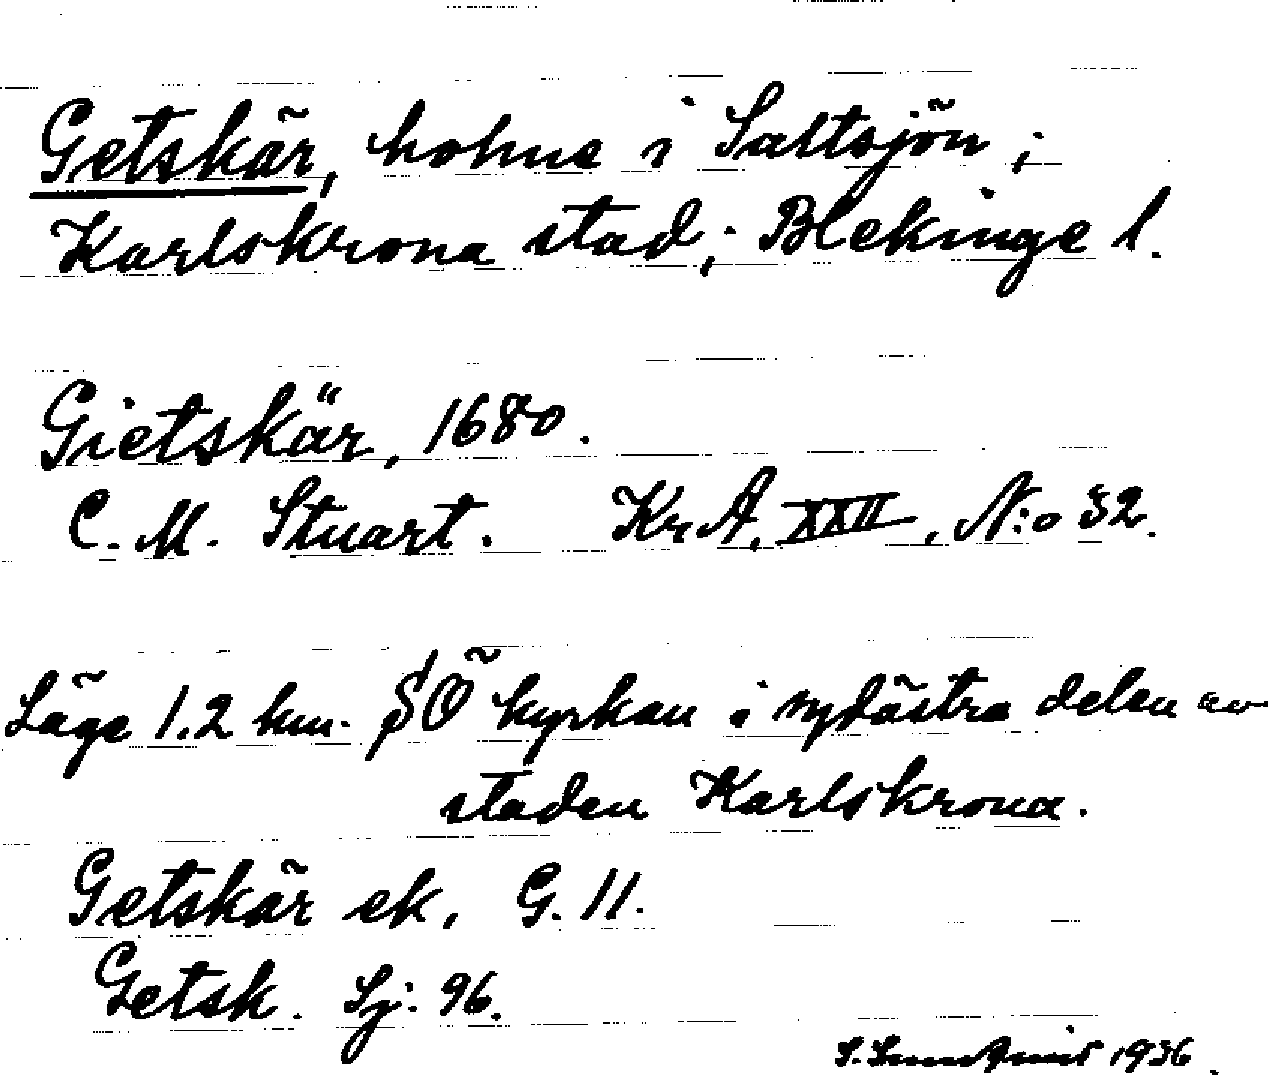 Getskär, holme i Saltsjön;
Karlskrona stad; Blekinge l.
Gietskär, 1680.
C. M. Stuart. KrA. XXII, N:o 32.
Läge 1.2 km. SÖ kyrkan i sydöstra delen av
staden Karlskrona.
Getskär ek. G. 11.
Getsk. Sj: 96.
S. 1936.